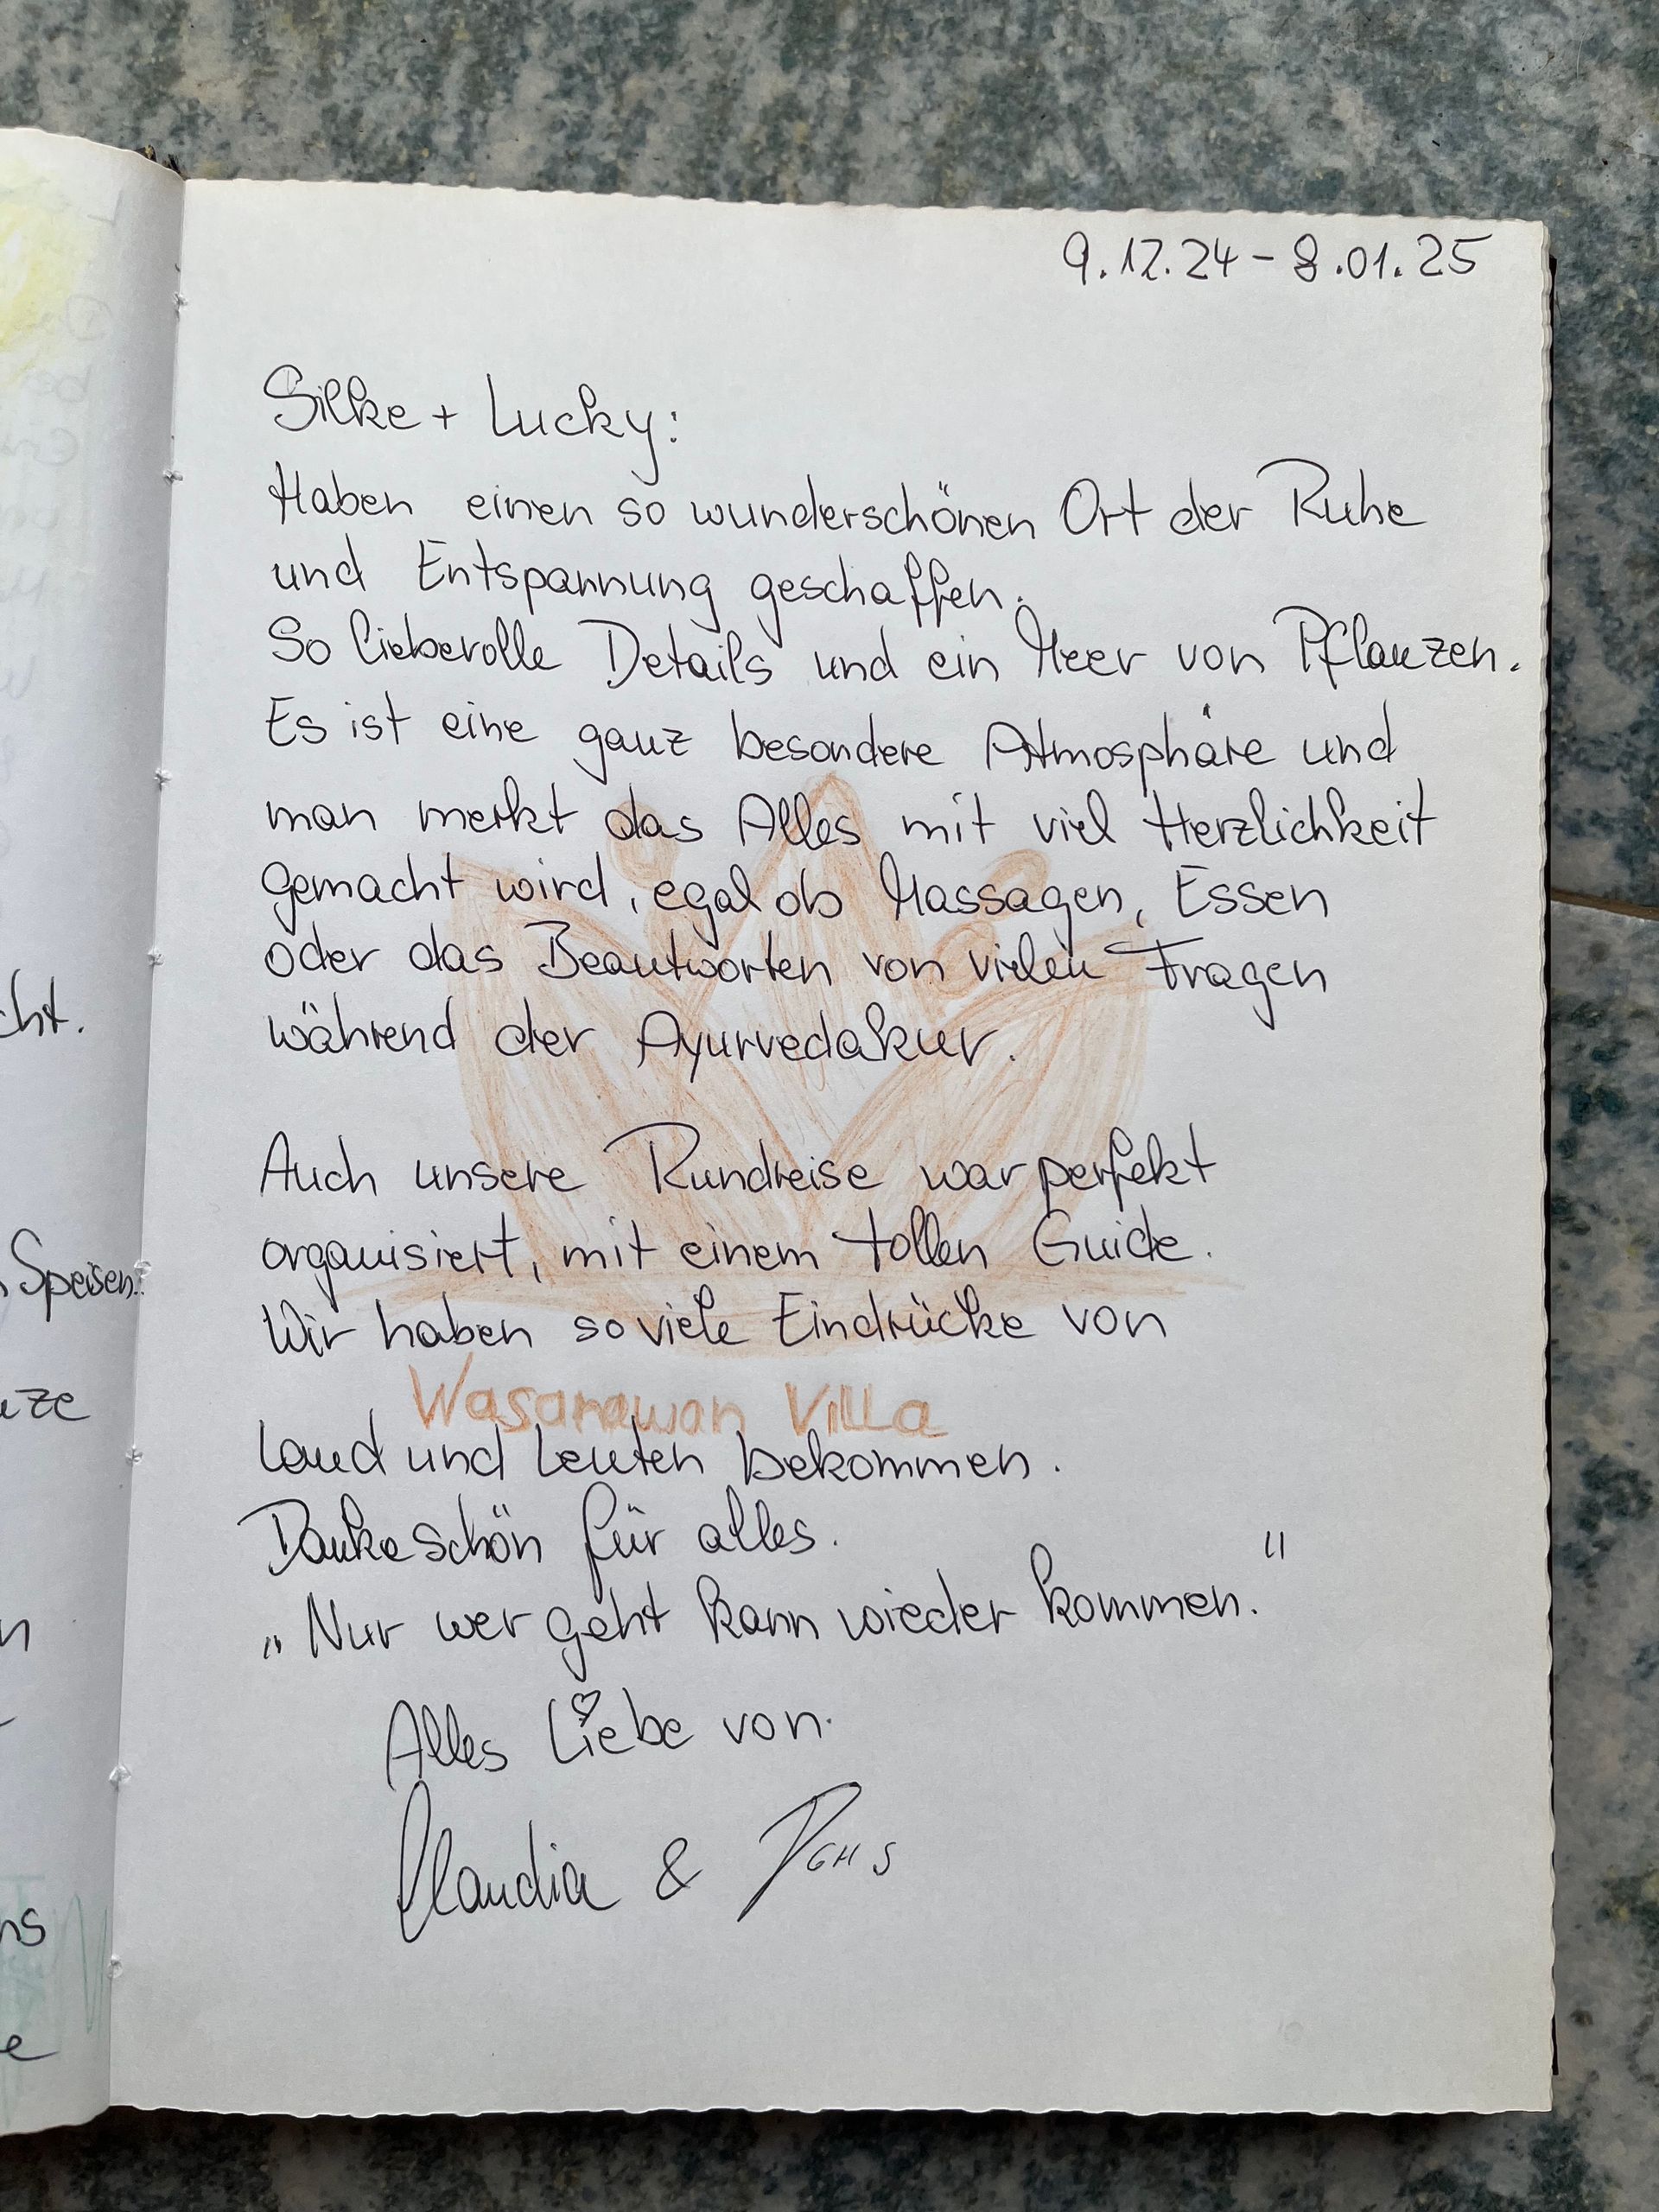 9.12.24 - 8.01.25
Silke + Lucky:
Haben einen so wunderschönen Ort der Ruhe
und Entspannung geschaffen.
So liebevolle Details und ein Meer von Pflanzen.
Es ist eine ganz besondere Atmosphäre und
man merkt das Alles mit viel Herzlichkeit
gemacht wird, egal ob Massagen, Essen
oder das Beantworten von vielen Fragen
während der Ayurvedakur.
Auch unsere Rundreise war perfekt
organisiert, mit einem tollen Guide.
Wir haben so viele Eindrücke von
Wasanawan Villa
Land und Leuten bekommen.
Dankeschön für alles.
„Nur wer geht kann wieder kommen."
Alles Liebe von
Claudia &
cht.
Speisen.
ze
n
ns
e